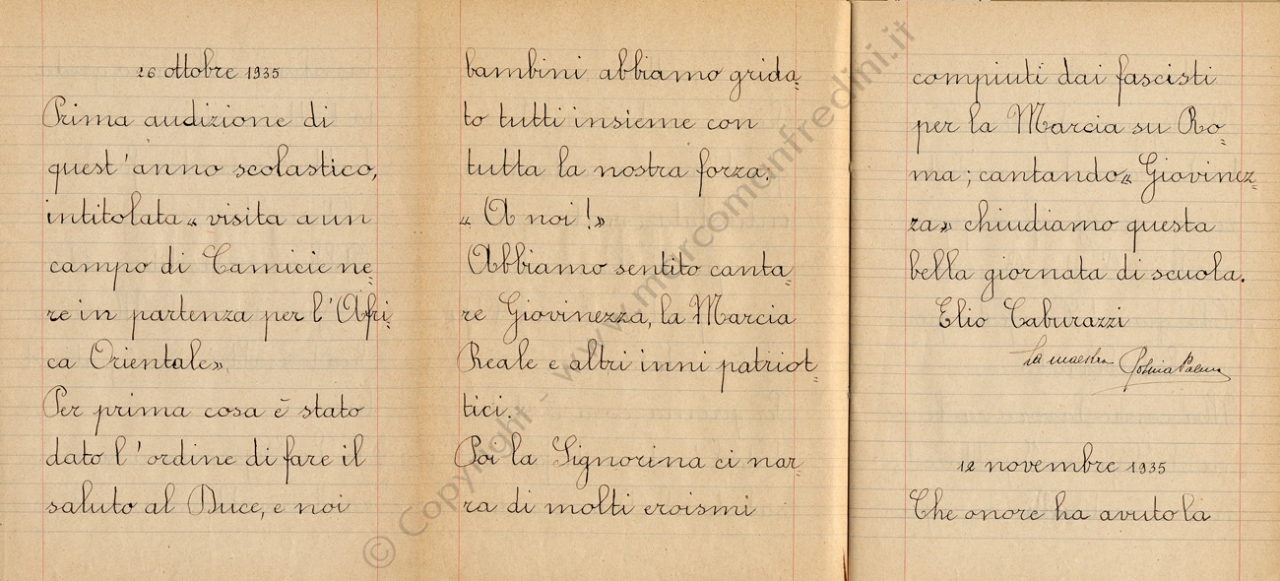 26 ottobre 1935
Prima audizione di
quest'anno scolastico,
intitolata « visita a un
campo di Camicie ne=
re in partenza per l'Afri=
ca Orientale»
Per prima cosa è stato
dato l'ordine di fare il
saluto al Duce, e noi
bambini abbiamo grida=
to tutti insieme con
tutta la nostra forza:
« A noi!»
Abbiamo sentito canta=
re Giovinezza, la Marcia
Reale e altri inni patriot=
tici.
Poi la Signorina ci nar=
ra di molti eroismi
compiuti dai fascisti
per la Marcia su Ro=
ma; cantando « Giovinez=
za» chiudiamo questa
bella giornata di scuola.
Elio Caburazzi
La maestra
12 novembre 1935
Che onore ha avuto la
© Copyright - www.marcomanfredini.it